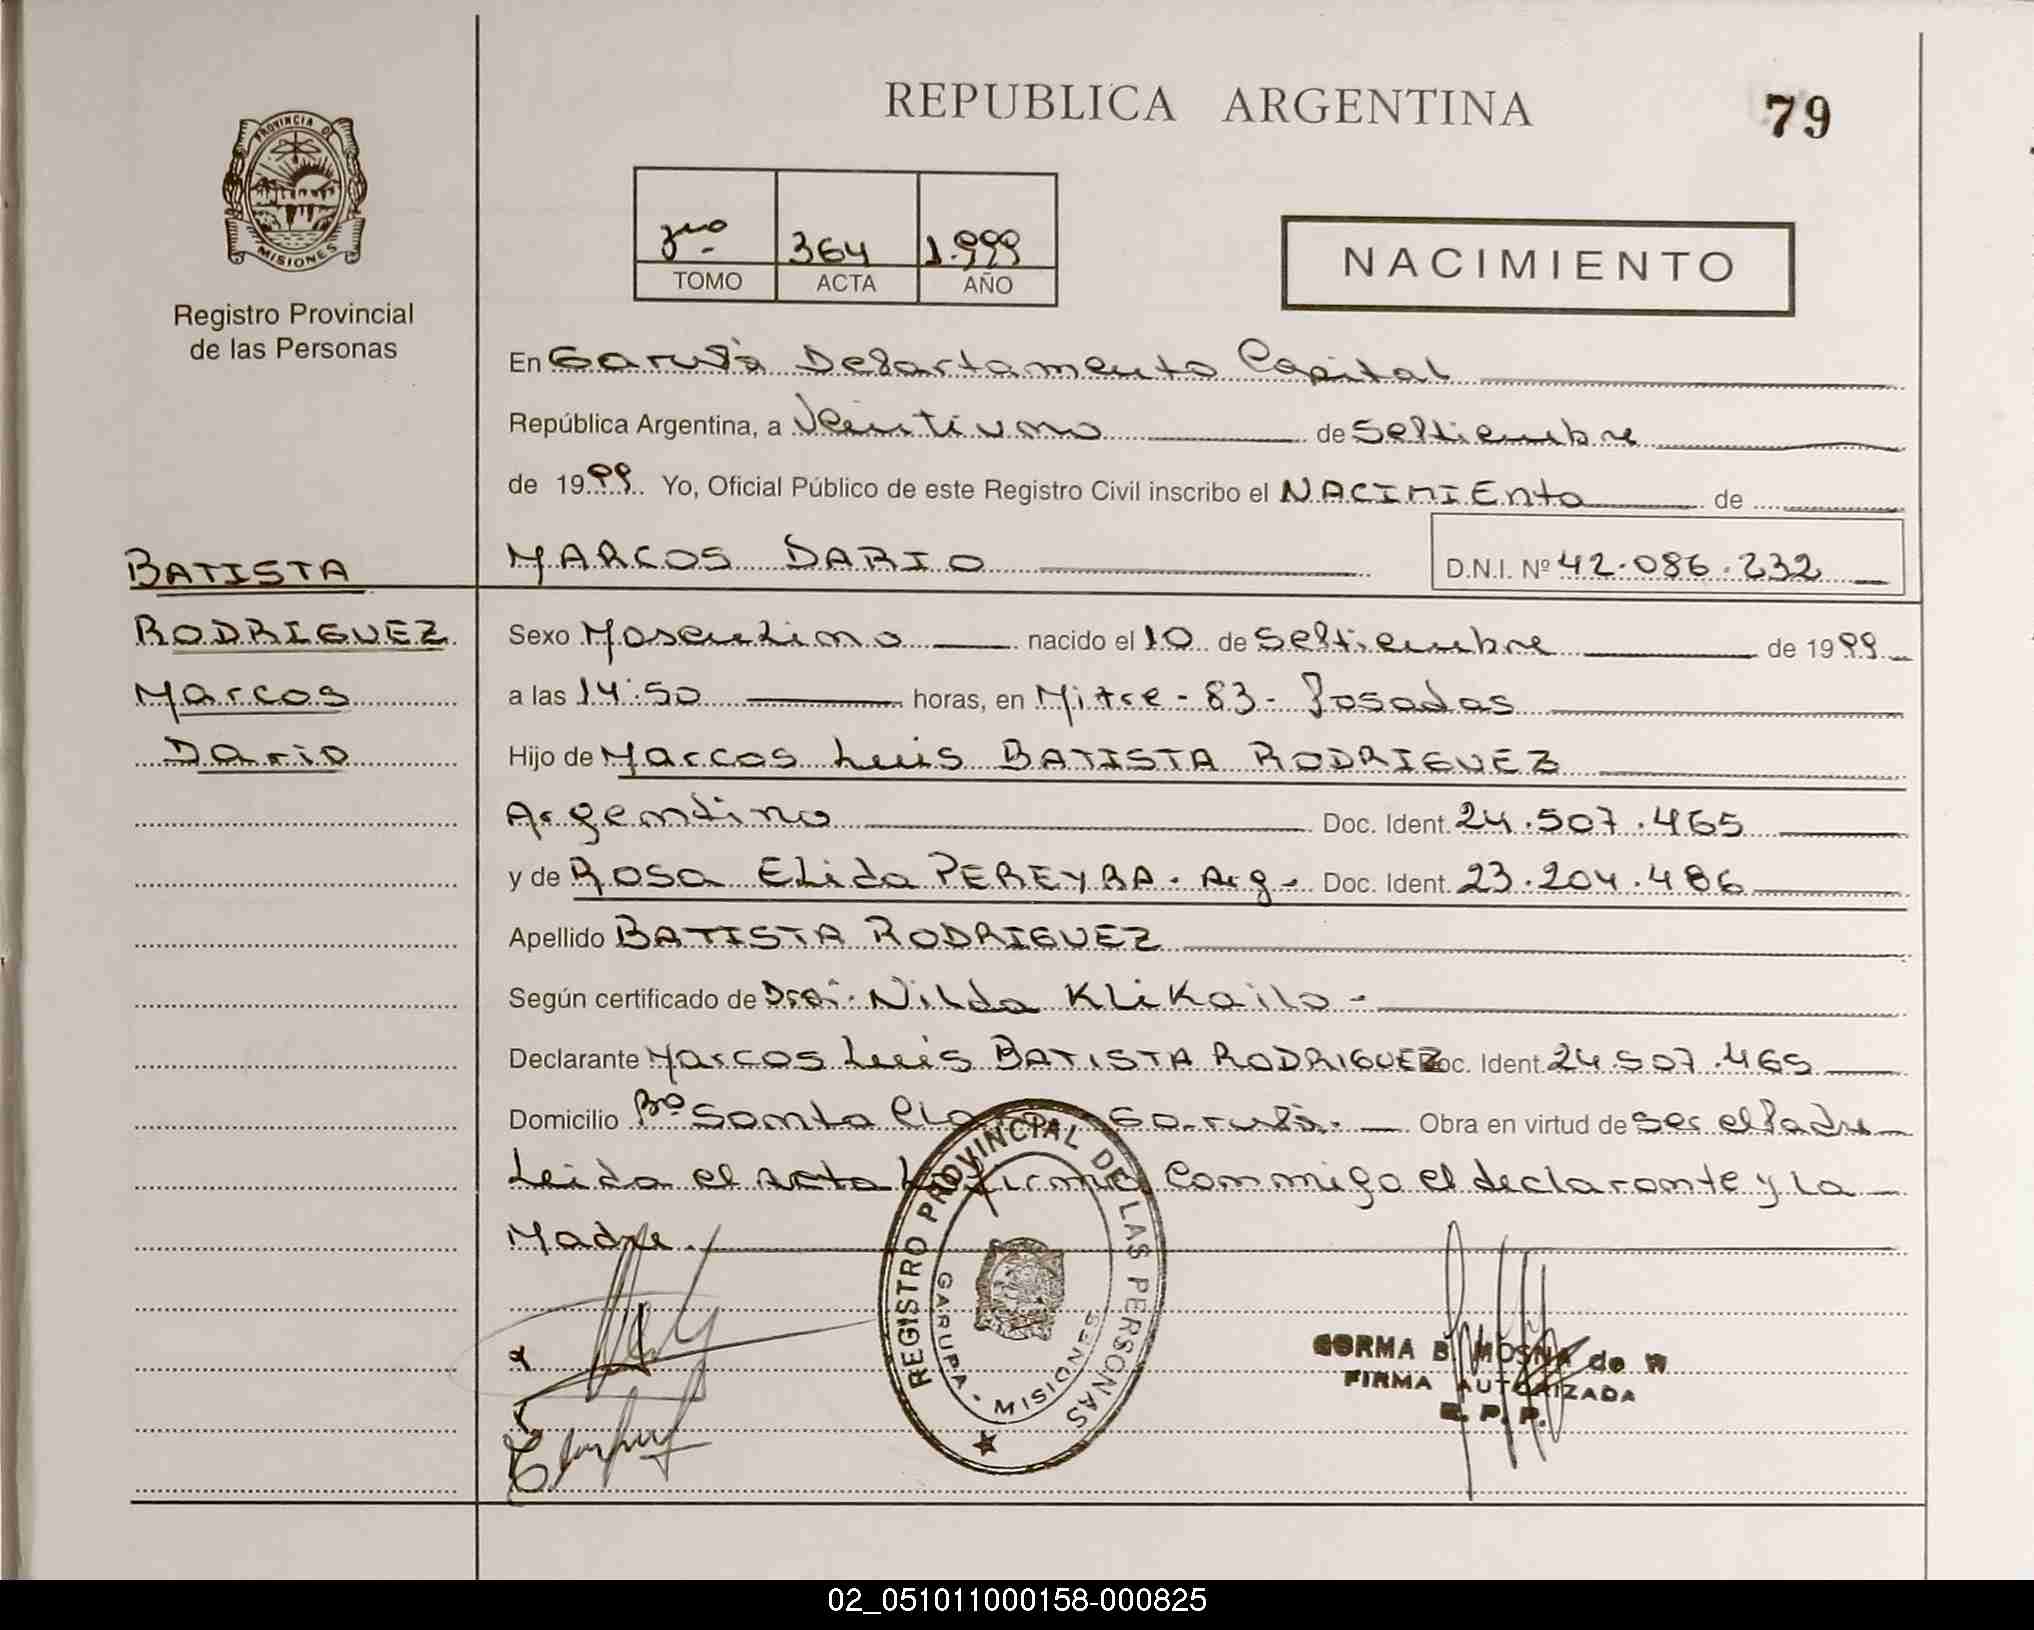 REPUBLICA ARGENTINA
79
PROVINCIA DE
MISIONES
Registro Provincial
de las Personas
364 1.999
TOMO ACTA AÑO
NACIMIENTO
En Garupá Departamento Capital
República Argentina, a Veintiuno de Septiembre
de 1999. Yo, Oficial Público de este Registro Civil inscribo el NACIMIENTO de
BATISTA
MARCOS DARIO
D.N.I. Nº 42.086.232
RODRIGUEZ
Sexo Masculino nacido el 10 de Septiembre de 1999
Marcos
a las 14:50 horas, en Mitre - 83 - Posadas
Dario
Hijo de Marcos Luis BATISTA RODRIGUEZ
Argentino Doc. Ident. 24.507.465
y de ROSA ELida PEREYRA. Arg. Doc. Ident. 23.204.486
Apellido BATISTA RODRIGUEZ
Según certificado de Dra. Nilda Klikailo -
Declarante Marcos Luis BATISTA RODRIGUEZ Doc. Ident. 24.507.465
Domicilio Bº Santa Garupá. Obra en virtud de ser el Padre
Leida el acta La Firman Conmigo el declarante y La
Madre.
REGISTRO PROVINCIAL DE LAS PERSONAS
GARUPA - MISIONES
B. MOSNA de W
FIRMA AUTORIZADA
R. P. P.
02_051011000158-000825